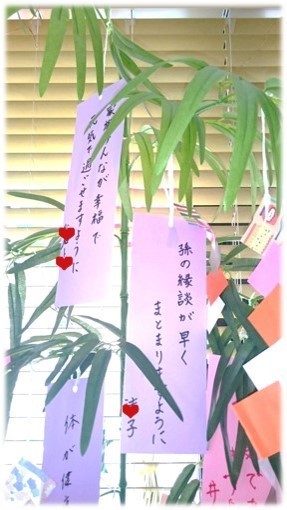 みんなが幸福で
元気で過ごせますように
孫の縁談が早く
まとまりますように
子
体が